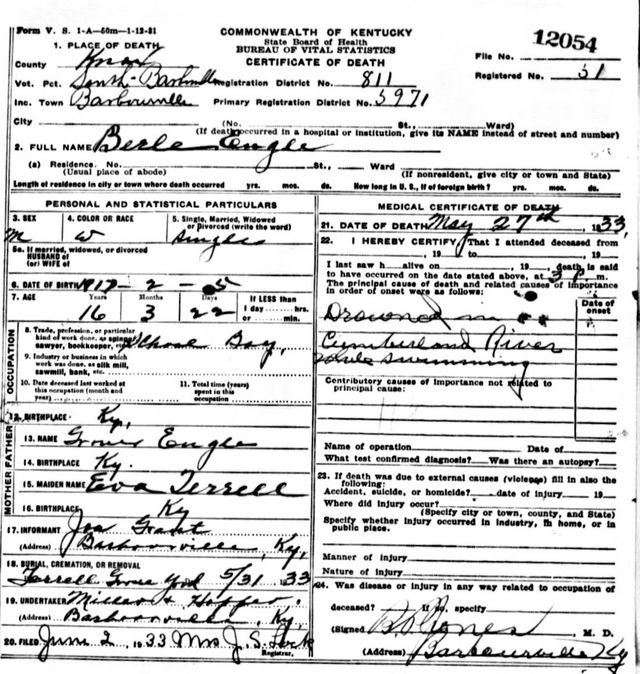 Form V. S. 1-A—50m—1-12-31
COMMONWEALTH OF KENTUCKY
State Board of Health
BUREAU OF VITAL STATISTICS
CERTIFICATE OF DEATH
File No. 12054
Registered No. 51
1. PLACE OF DEATH
County Knox
Vot. Pct. South Barbourville Registration District No. 811
Inc. Town Barbourville Primary Registration District No. 5971
City (No. St., Ward)
(If death occurred in a hospital or institution, give its NAME instead of street and number)
2. FULL NAME Berle Engle
(a) Residence. No. St., Ward
(Usual place of abode) (If nonresident, give city or town and State)
Length of residence in city or town where death occurred yrs. mos. ds. How long in U. S., if of foreign birth? yrs. mos. ds.
PERSONAL AND STATISTICAL PARTICULARS
3. SEX M
4. COLOR OR RACE W
5. Single, Married, Widowed or Divorced (write the word) Single
5a. If married, widowed, or divorced
HUSBAND of
(or) WIFE of
6. DATE OF BIRTH 1917-2-5
7. AGE Years Months Days If LESS than
1 day hrs.
or min.
16 3 22
OCCUPATION
8. Trade, profession, or particular kind of work done, as spinner, sawyer, bookkeeper, etc. School Boy,
9. Industry or business in which work was done, as silk mill, sawmill, bank, etc.
10. Date deceased last worked at this occupation (month and year)
11. Total time (years) spent in this occupation
12. BIRTHPLACE Ky,
FATHER
13. NAME Grover Engle
14. BIRTHPLACE Ky.
MOTHER
15. MAIDEN NAME Eva Terrell
16. BIRTHPLACE Ky
17. INFORMANT Joe Grant
(Address) Barbourville, Ky,
18. BURIAL, CREMATION, OR REMOVAL
Terrell Grave Yard 5/31 33
19. UNDERTAKER Miller & Hopper,
(Address) Barbourville, Ky.
20. FILED June 2, 1933 Mrs J. S.
Registrar.
MEDICAL CERTIFICATE OF DEATH
21. DATE OF DEATH May 27th, 1933,
22. I HEREBY CERTIFY, That I attended deceased from
, 19 to , 19
I last saw h alive on , 19 , death is said
to have occurred on the date stated above, at 3 P. m.
The principal cause of death and related causes of importance
in order of onset were as follows:
Date of onset
Drowned in
Cumberland River
while swimming
Contributory causes of importance not related to principal cause:
Name of operation Date of
What test confirmed diagnosis? Was there an autopsy?
23. If death was due to external causes (violence) fill in also the following:
Accident, suicide, or homicide? date of injury 19
Where did injury occur?
(Specify city or town, county, and State)
Specify whether injury occurred in industry, in home, or in public place.
Manner of injury
Nature of injury
24. Was disease or injury in any way related to occupation of
deceased? If so, specify
(Signed Jones M. D.
(Address) Barbourville Ky